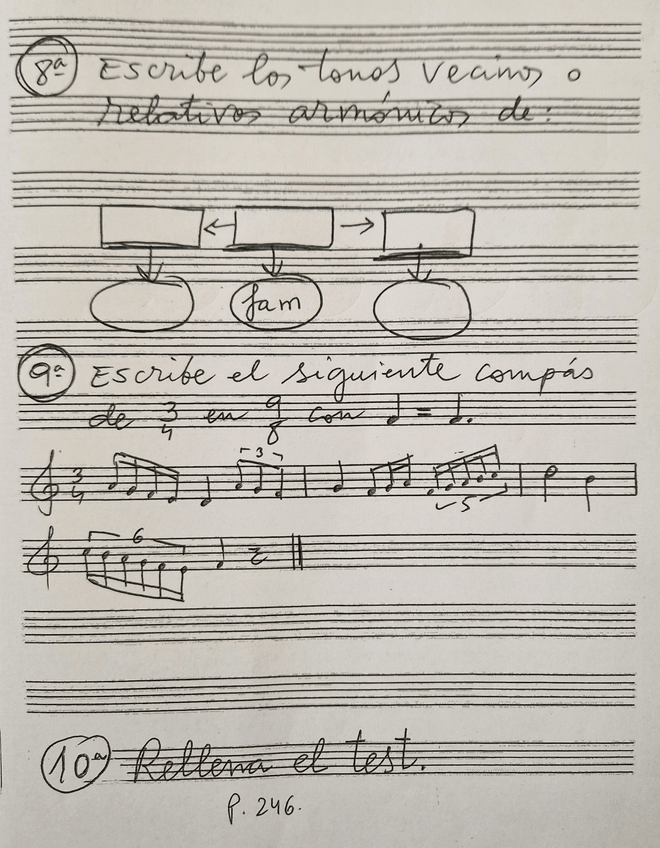 8ª Escribe los tonos vecinos o
relativos armónicos de:
fam
9ª Escribe el siguiente compás
de 3/4 en 9/8 con ♩ = ♩.
3
3/4
5
6
10ª Rellena el test.
P. 246.